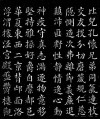 比兒孔懷兄弟同氣連枝
交友投分切磨箴規仁慈
隱惻造次弗離節義廉退
顛沛匪虧性靜情逸心動
神疲守真志滿逐物意移
堅持雅操好爵自縻都邑
華夏東西二京背邙面洛
浮渭據涇宮殿盤鬱樓觀